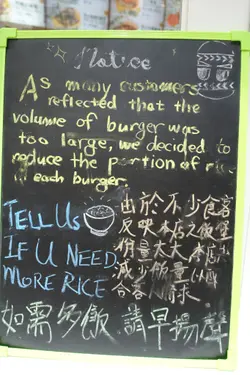 Notice
As many customers
reflected that the
volume of burger was
too large, we decided to
reduce the portion of
each burger
TELL US
IF U NEED
MORE RICE
由於不少食客
反映本店之飯堡
份量太大 本店
減少飯量以
合客人需求
如需多飯 請早揚聲